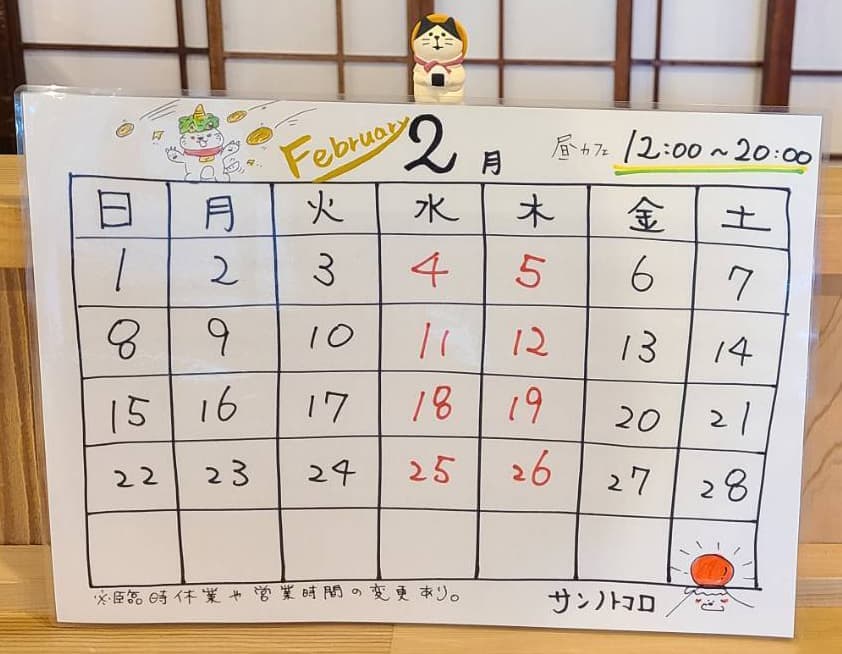 February 2月 昼カフェ 12:00~20:00
日 月 火 水 木 金 土
1 2 3 4 5 6 7
8 9 10 11 12 13 14
15 16 17 18 19 20 21
22 23 24 25 26 27 28
※臨時休業や営業時間の変更あり。 サンノトコロ